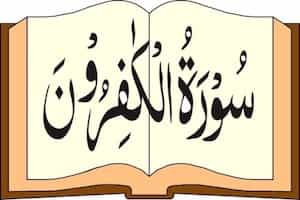 سُورَةُ الْكٰفِرُونَ